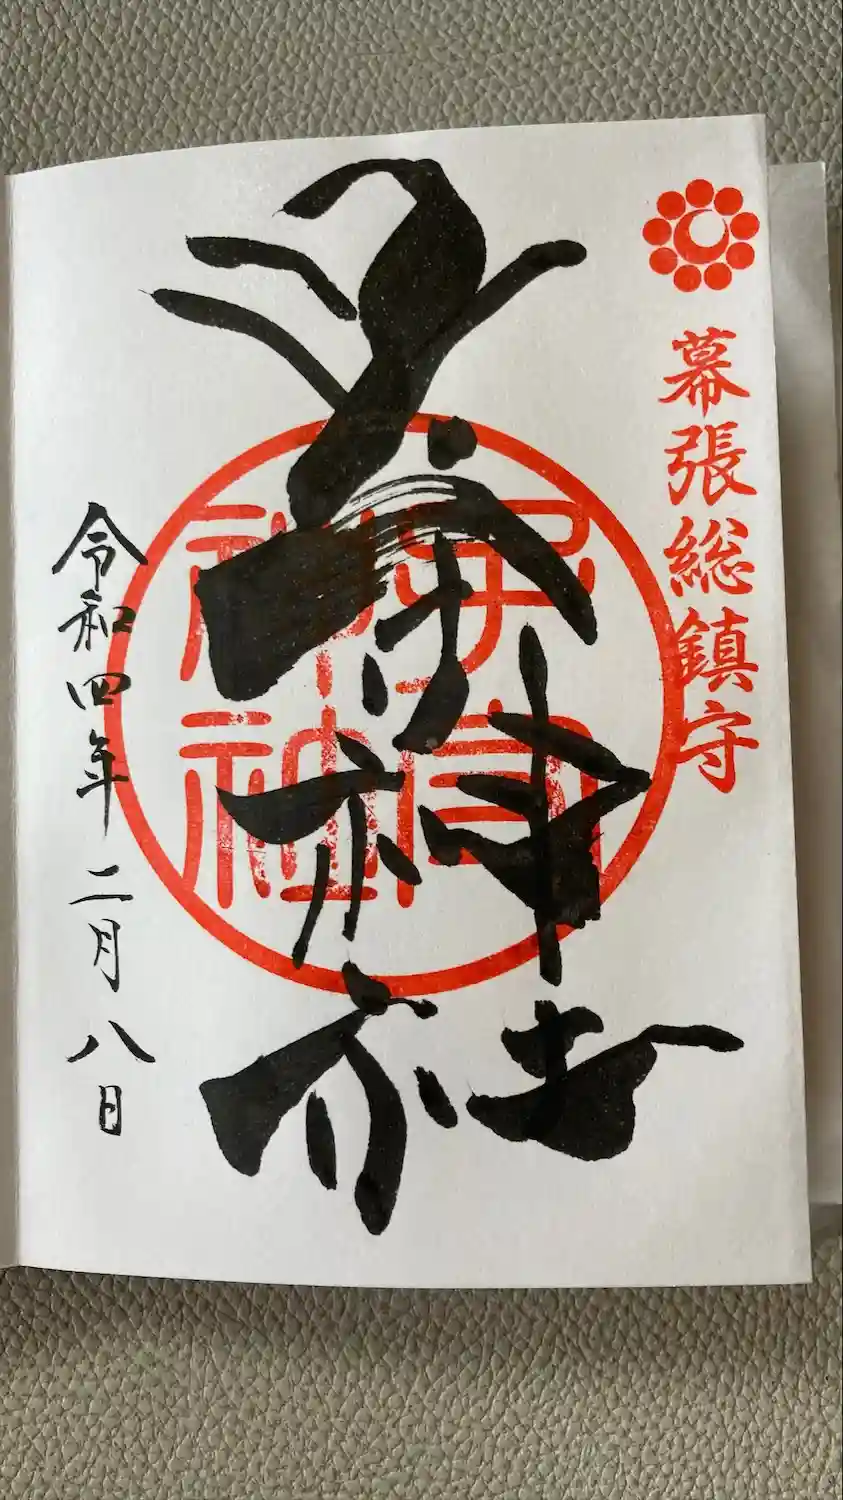 幕張総鎮守
子安神社
子安神社
令和四年二月八日